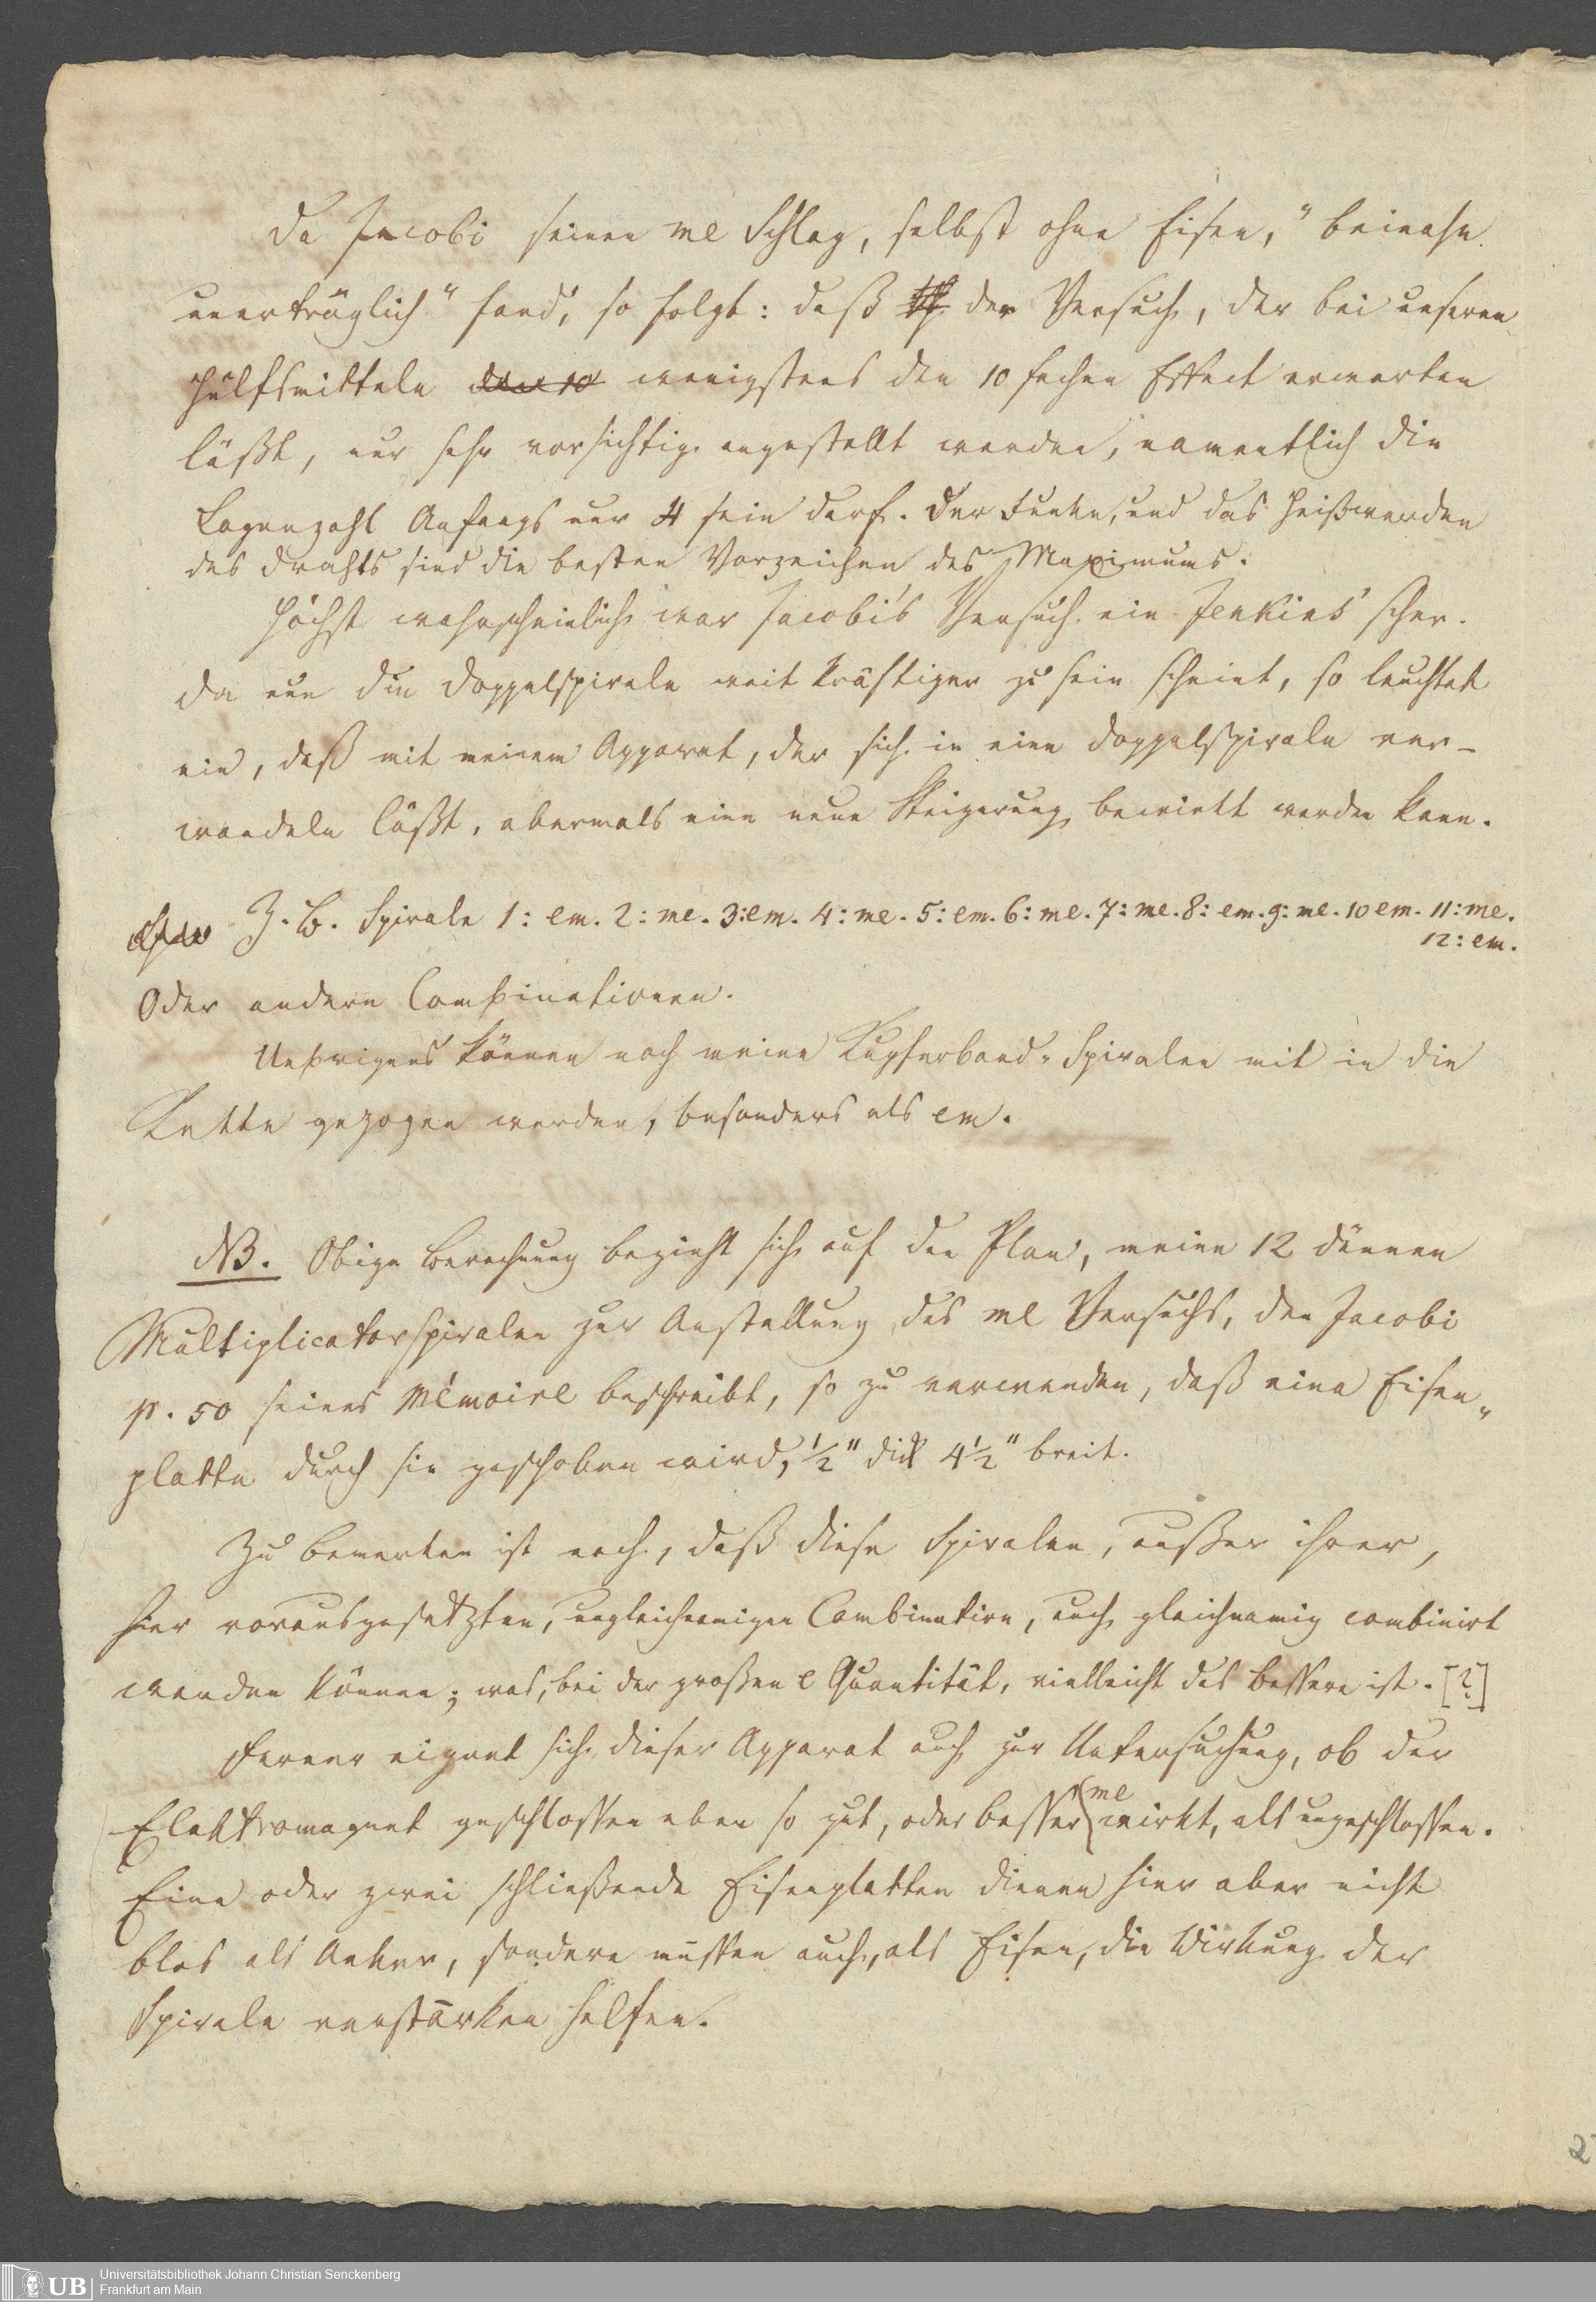 Da Jacobi seinen me Schlag, selbst ohne Eisen, "beinahe
unerträglich" fand, so folgt: daß der Versuch, der bei unseren
Hülfsmitteln den 10 wenigstens den 10 fachen Effect erwarten
läßt, nur sehr vorsichtig angestellt werden, namentlich die
Lagenzahl Anfangs nur 4 sein darf. Der Funke, und das Heißwerden
des Drahts sind die besten Vorzeichen des Maximums.
Höchst wahrscheinlich war Jacobi's Versuch ein Jenkins'scher.
Da nun die Doppelspirale weit kräftiger zu sein scheint, so leuchtet
ein, daß mit meinem Apparat, der sich in eine Doppelspirale ver-
wandeln läßt, abermals eine neue Steigerung bewirkt werden kann.
Z. B. Spirale 1: em. 2: me. 3: em. 4: me. 5: em. 6: me. 7: me. 8: em. 9: me. 10 em. 11: me.
12: em.
Oder andere Combinationen.
Uebrigens können noch meine Kupferband-Spiralen mit in die
Kette gezogen werden, besonders als em.
NB. Obige Berechnung bezieht sich auf den Plan, meine 12 dünnen
Multiplicatorspiralen zur Anstellung des me Versuchs, den Jacobi
p. 50 seines Mémoire beschreibt, so zu verwenden, daß eine Eisen-
platte durch sie geschoben wird, ½" dick 4½" breit.
Zu bemerken ist noch, daß diese Spiralen, außer ihrer,
hier vorausgesetzten, ungleichnamigen Combination, auch gleichnamig combinirt
werden können; was, bei der großen e Quantität, vielleicht das bessere ist. [?]
Ferner eignet sich dieser Apparat auch zur Untersuchung, ob der
Elektromagnet geschlossen eben so gut, oder besser me wirkt, als ungeschlossen.
Eine oder zwei schließende Eisenplatten dienen hier aber nicht
blos als Anker, sondern müssen auch, als Eisen, die Wirkung der
Spirale verstärken helfen.
UB
Universitätsbibliothek Johann Christian Senckenberg
Frankfurt am Main